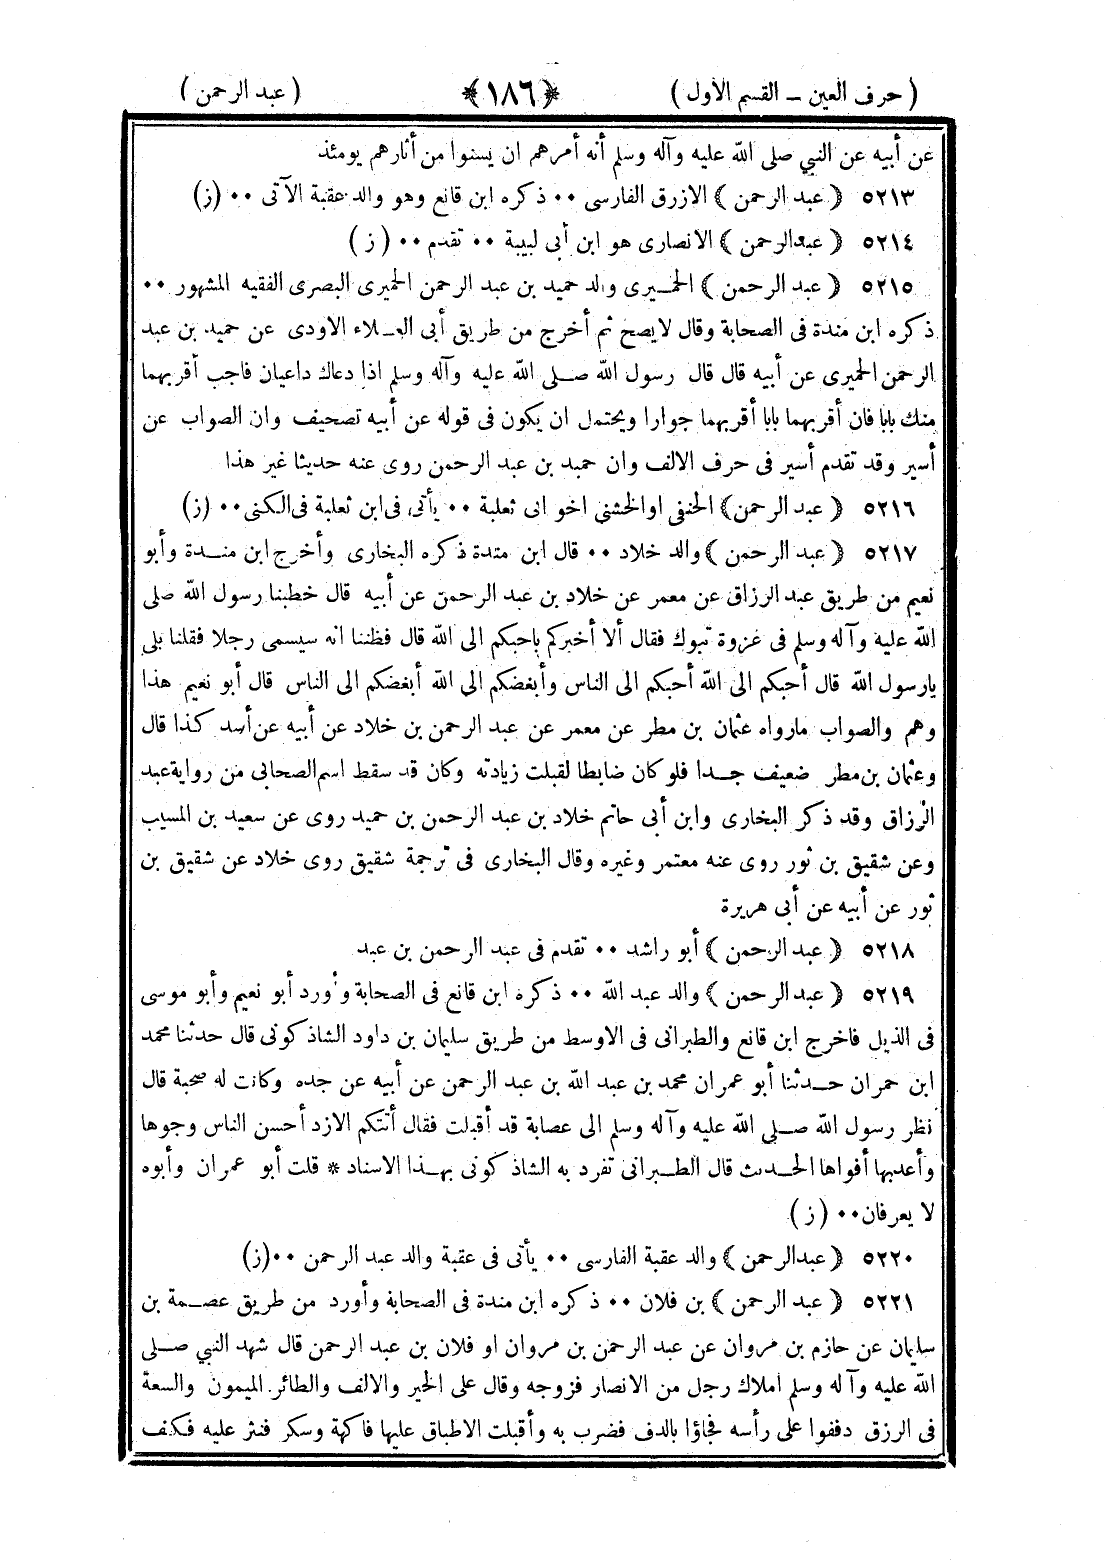 ( حرف العين – القسم الأول ) ﴿ ١٨٦ ﴾ ( عبد الرحمن )
عن أبيه عن النبي صلى الله عليه وآله وسلم أنه أمرهم ان يسنوا من أثارهم يومئذ
٥٢١٣ ﴿ عبد الرحمن ﴾ الازرق الفارسى ٠٠ ذكره ابن قانع وهو والد عقبة الآتى ٠٠ (ز)
٥٢١٤ ﴿ عبد الرحمن ﴾ الانصارى هو ابن أبى لبيبة ٠٠ تقدم ٠٠ ( ز )
٥٢١٥ ﴿ عبد الرحمن ﴾ الحميرى والد حميد بن عبد الرحمن الحميرى البصرى الفقيه المشهور ٠٠
ذكره ابن مندة فى الصحابة وقال لايصح ثم أخرج من طريق أبى العلاء الاودى عن حميد بن عبد
الرحمن الحميرى عن أبيه قال قال رسول الله صلى الله عليه وآله وسلم اذا دعاك داعيان فاجب أقربهما
منك بابا فان أقربهما بابا أقربهما جوارا ويحتمل ان يكون فى قوله عن أبيه تصحيف وان الصواب عن
أسير وقد تقدم أسير فى حرف الالف وان حميد بن عبد الرحمن روى عنه حديثا غير هذا
٥٢١٦ ﴿ عبد الرحمن ﴾ الحنفى اوالخشنى اخو انى ثعلبة ٠٠ يأتى فى ابن ثعلبة فى الكنى ٠٠ (ز)
٥٢١٧ ﴿ عبد الرحمن ﴾ والد خلاد ٠٠ قال ابن مندة ذكره البخارى وأخرج ابن مندة وأبو
نعيم من طريق عبد الرزاق عن معمر عن خلاد بن عبد الرحمن عن أبيه قال خطبنا رسول الله صلى
الله عليه وآله وسلم فى غزوة تبوك فقال ألا أخبركم باحبكم الى الله قال فظننا انه سيسمى رجلا فقلنا بلى
يارسول الله قال أحبكم الى الله أحبكم الى الناس وأبغضكم الى الله أبغضكم الى الناس قال أبو نعيم هذا
وهم والصواب مارواه عثمان بن مطر عن معمر عن عبد الرحمن بن خلاد عن أبيه عن أسد كذا قال
وعثمان بن مطر ضعيف جدا فلو كان ضابطا لقبلت زيادته وكان قد سقط اسم الصحابى من رواية عبد
الرزاق وقد ذكر البخارى وابن أبى حاتم خلاد بن عبد الرحمن بن حميد روى عن سعيد بن المسيب
وعن شقيق بن ثور روى عنه معتمر وغيره وقال البخارى فى ترجمة شقيق روى خلاد عن شقيق بن
ثور عن أبيه عن أبى هريرة
٥٢١٨ ﴿ عبد الرحمن ﴾ أبو راشد ٠٠ تقدم فى عبد الرحمن بن عبد
٥٢١٩ ﴿ عبد الرحمن ﴾ والد عبد الله ٠٠ ذكره ابن قانع فى الصحابة وأورد أبو نعيم وأبو موسى
فى الذيل فاخرج ابن قانع والطبرانى فى الاوسط من طريق سليمان بن داود الشاذكونى قال حدثنا محمد
ابن حمران حدثنا أبو عمران محمد بن عبد الله بن عبد الرحمن عن أبيه عن جده وكانت له صحبة قال
نظر رسول الله صلى الله عليه وآله وسلم الى عصابة قد أقبلت فقال أتتكم الازد أحسن الناس وجوها
وأعذبها أفواها الحديث قال الطبرانى تفرد به الشاذكونى بهذا الاسناد * قلت أبو عمران وأبوه
لا يعرفان ٠٠ ( ز )
٥٢٢٠ ﴿ عبد الرحمن ﴾ والد عقبة الفارسى ٠٠ يأتى فى عقبة والد عبد الرحمن ٠٠ (ز)
٥٢٢١ ﴿ عبد الرحمن ﴾ بن فلان ٠٠ ذكره ابن مندة فى الصحابة وأورد من طريق عصمة بن
سليمان عن حازم بن مروان عن عبد الرحمن بن مروان او فلان بن عبد الرحمن قال شهد النبي صلى
الله عليه وآله وسلم املاك رجل من الانصار فزوجه وقال على الخير والالف والطائر الميمون والسعة
فى الرزق دففوا على رأسه فجاؤا بالدف فضرب به وأقبلت الاطباق عليها فاكهة وسكر فنثر عليه فكف